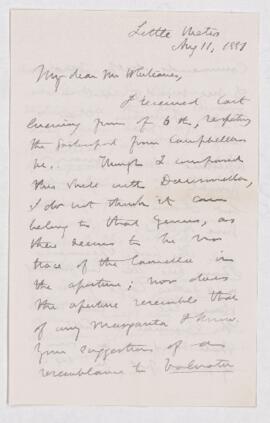 Little Metis
Aug 11, 1881
My dear Mr Whiteaves,
I received last
evening yours of 6th, respecting
the gasteropod from Campbellton
&c. Though I compared
this shell with Dawsonella,
I do not think it can
belong to that genus, as
there seems to be no
trace of the lamella in
the aperture; nor does
the aperture resemble that
of any Margarita I know.
Your suggestion of a
resemblance to Valvata